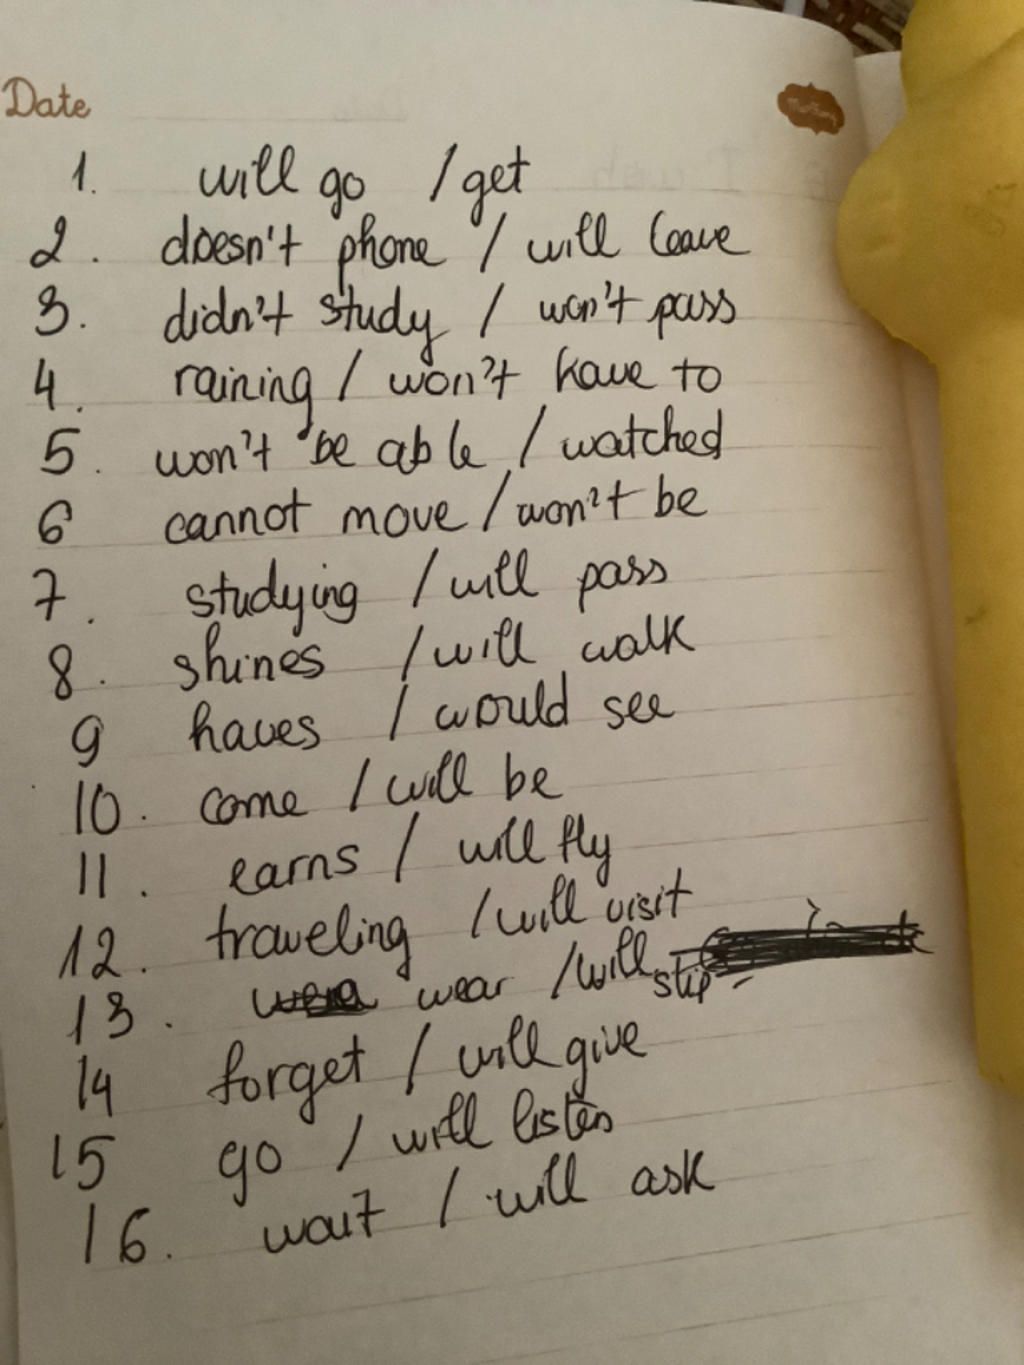 Date
1. will go / get
2. doesn't phone / will leave
3. didn't study / won't pass
4. raining / won't have to
5. won't be able / watched
6 cannot move / won't be
7. studying / will pass
8. shines / will walk
9 haves / would see
10. come / will be
11. earns / will fly
12. traveling / will visit
13. wear / will slip
14 forget / will give
15 go / will listen
16. wait / will ask